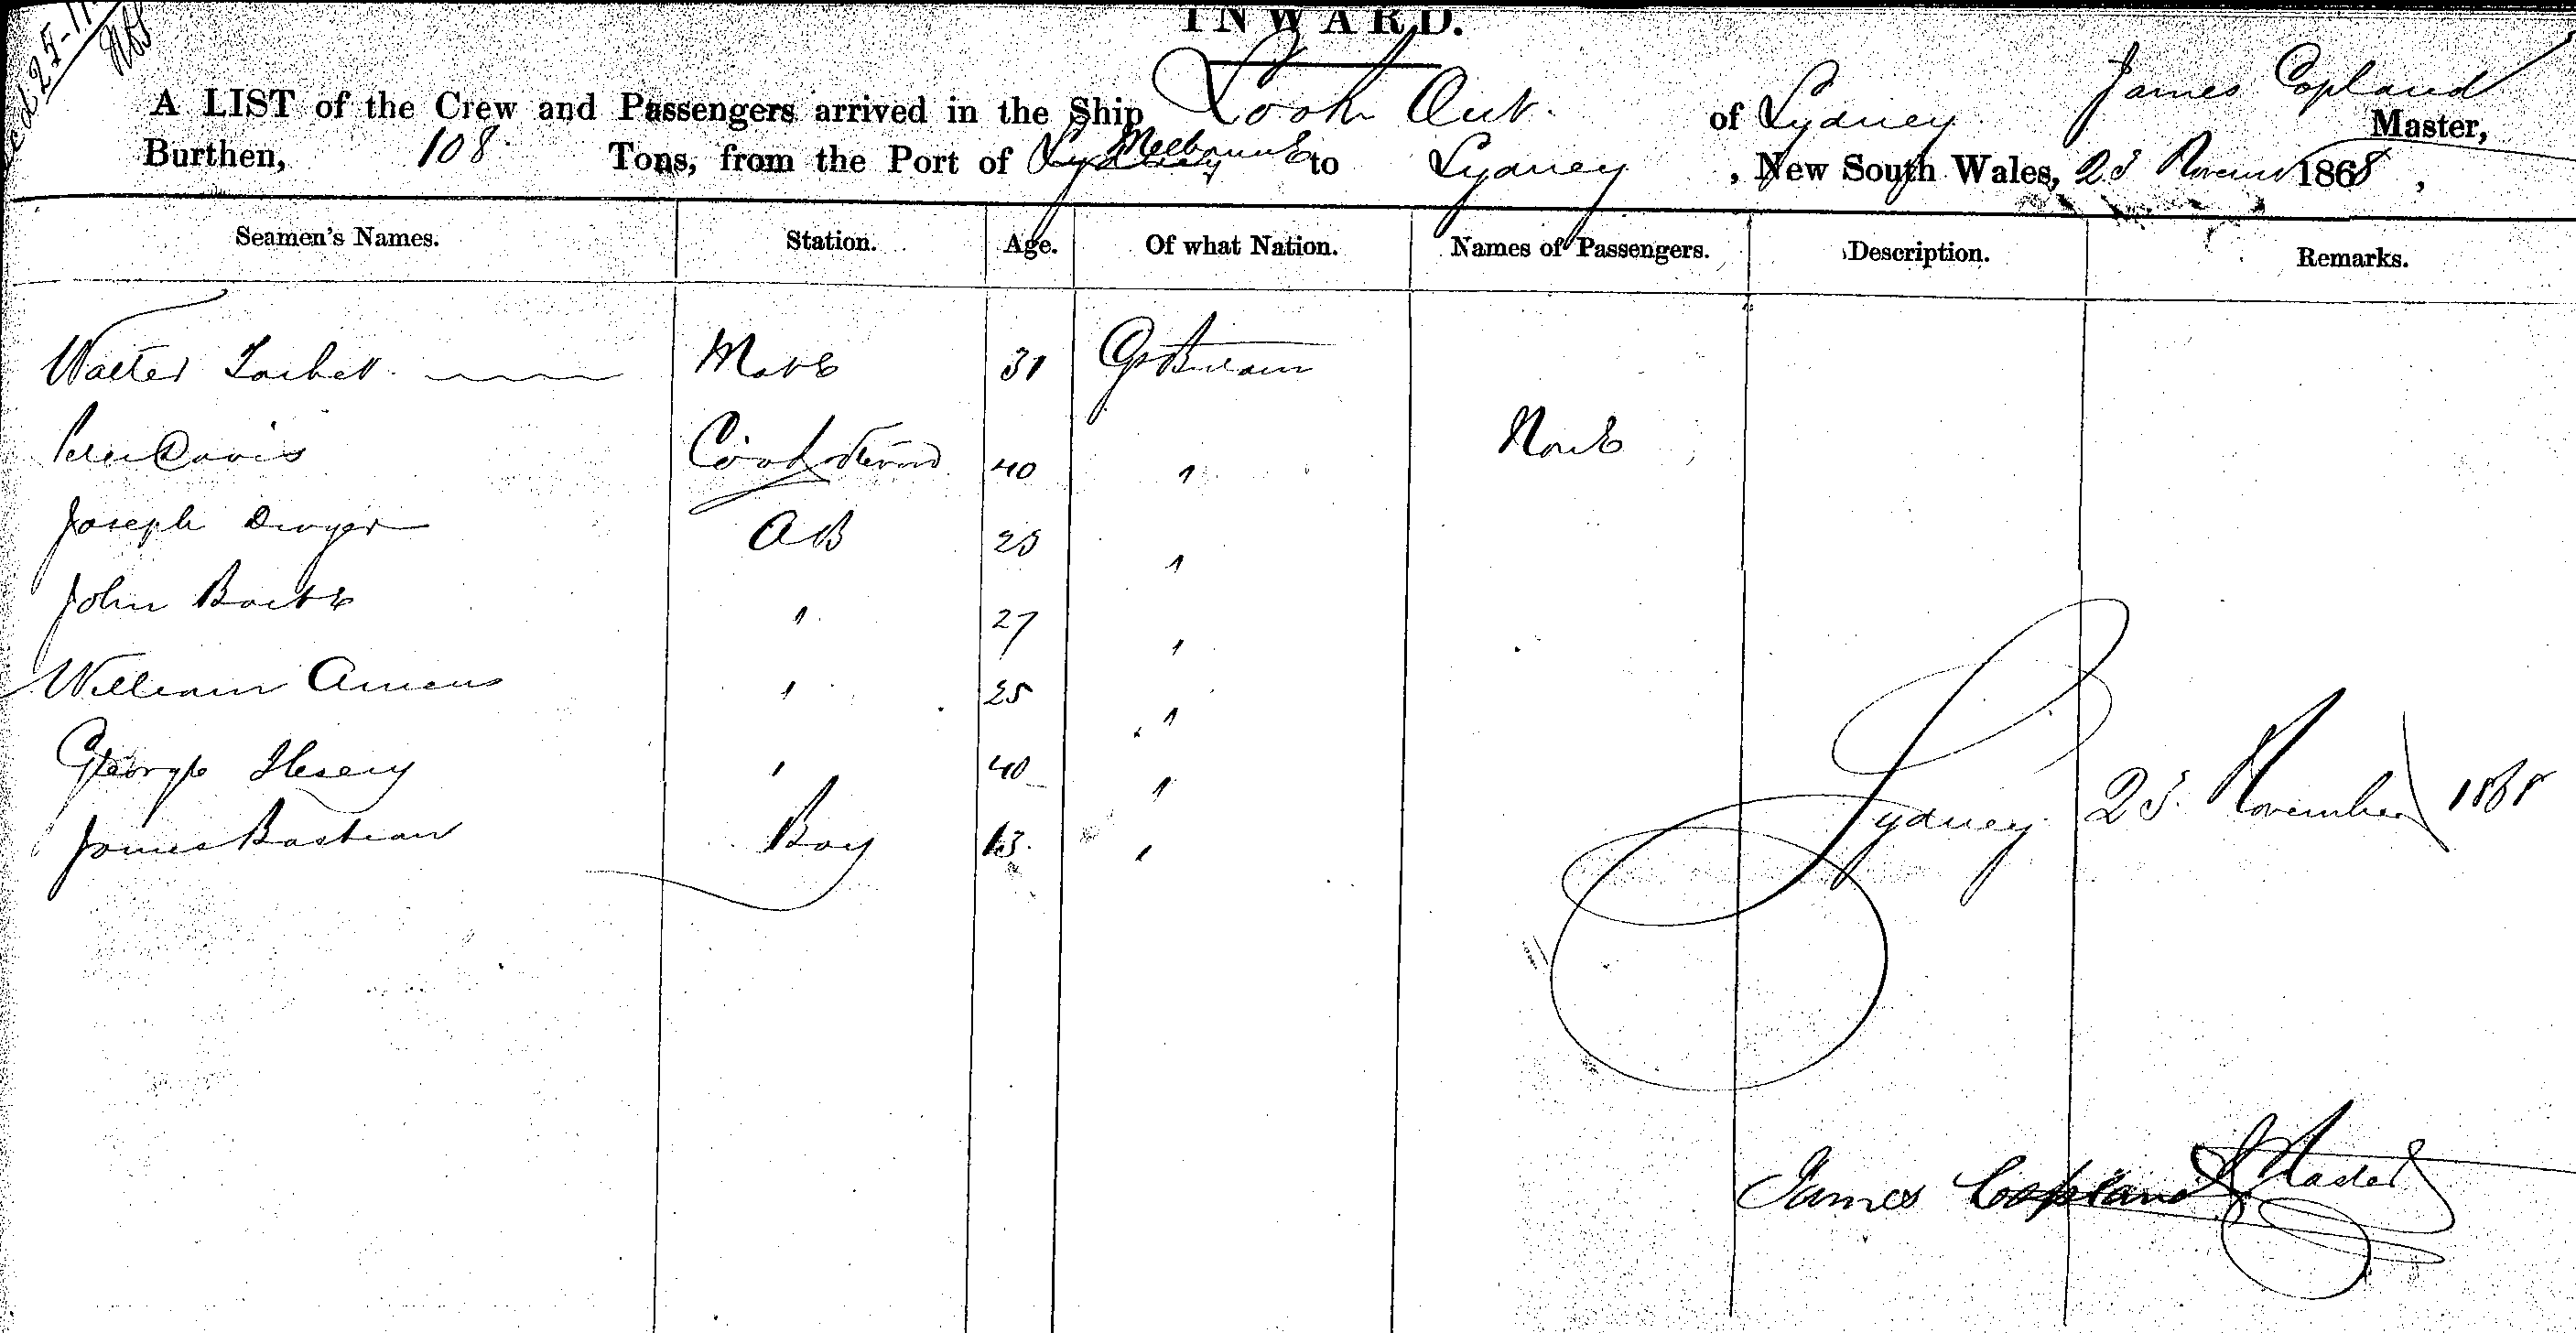 INWARD.
A LIST of the Crew and Passengers arrived in the Ship Look Out. of Sydney James Copland Master,
Burthen, 108 Tons, from the Port of Melbourne to Sydney, New South Wales, 23 November 1868,
Seamen's Names. Station. Age. Of what Nation. Names of Passengers. Description. Remarks.
Walter Mate 31 Gt Britain
Peter Davis Cook & Steward 40 " None
Joseph Dwyer AB 25 "
John " 27 "
William " 25 "
George " 40 "
James Bastian Boy 13 "
Sydney 23 November 1868
James Copland Master